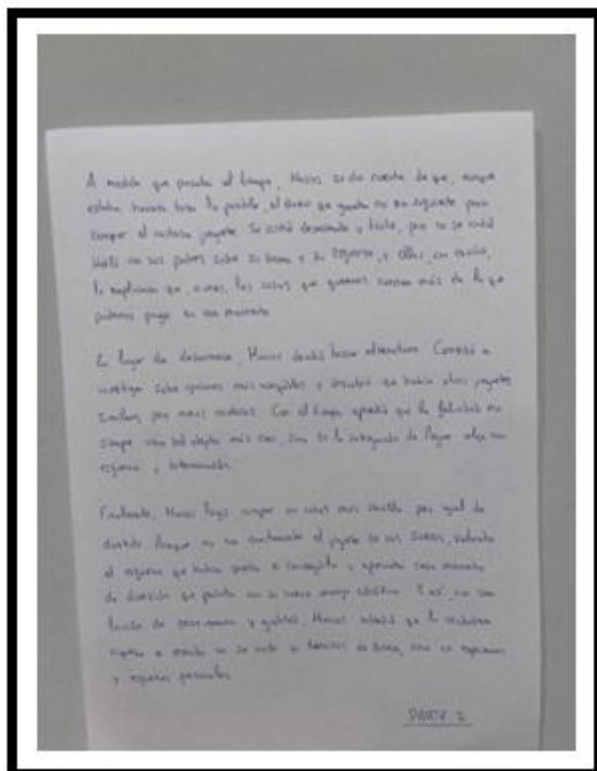 A medida que pasaba el tiempo, Marcos se dio cuenta de que, aunque
estaba haciendo todo lo posible, el dinero que ganaba no era suficiente para
comprar el costoso juguete. Se sintió desanimado y triste, pero no se rindió
con sus padres sobre su deseo y su esfuerzo, y ellos, con cariño,
le explicaron que, a veces, las cosas que queremos cuestan más de lo que
podemos pagar en ese momento.
En lugar de desanimarse, Marcos decidió buscar alternativas. Comenzó a
investigar sobre opciones más asequibles y descubrió que había otros juguetes
similares pero menos costosos. Con el tiempo, aprendió que la felicidad no
siempre viene del objeto más caro, sino de la satisfacción de lograr algo con
esfuerzo y determinación.
Finalmente, Marcos logró comprar un robot más sencillo pero igual de
divertido. Aunque no era exactamente el juguete de sus sueños, valoraba
el esfuerzo que había puesto en conseguirlo y apreciaba cada momento
de diversión que pasaba con su nuevo amigo robótico. Y así, con una
lección de perseverancia y gratitud, Marcos entendió que la verdadera
riqueza a menudo no se mide en términos de dinero, sino en experiencias
y esfuerzos personales.
PARTE 2